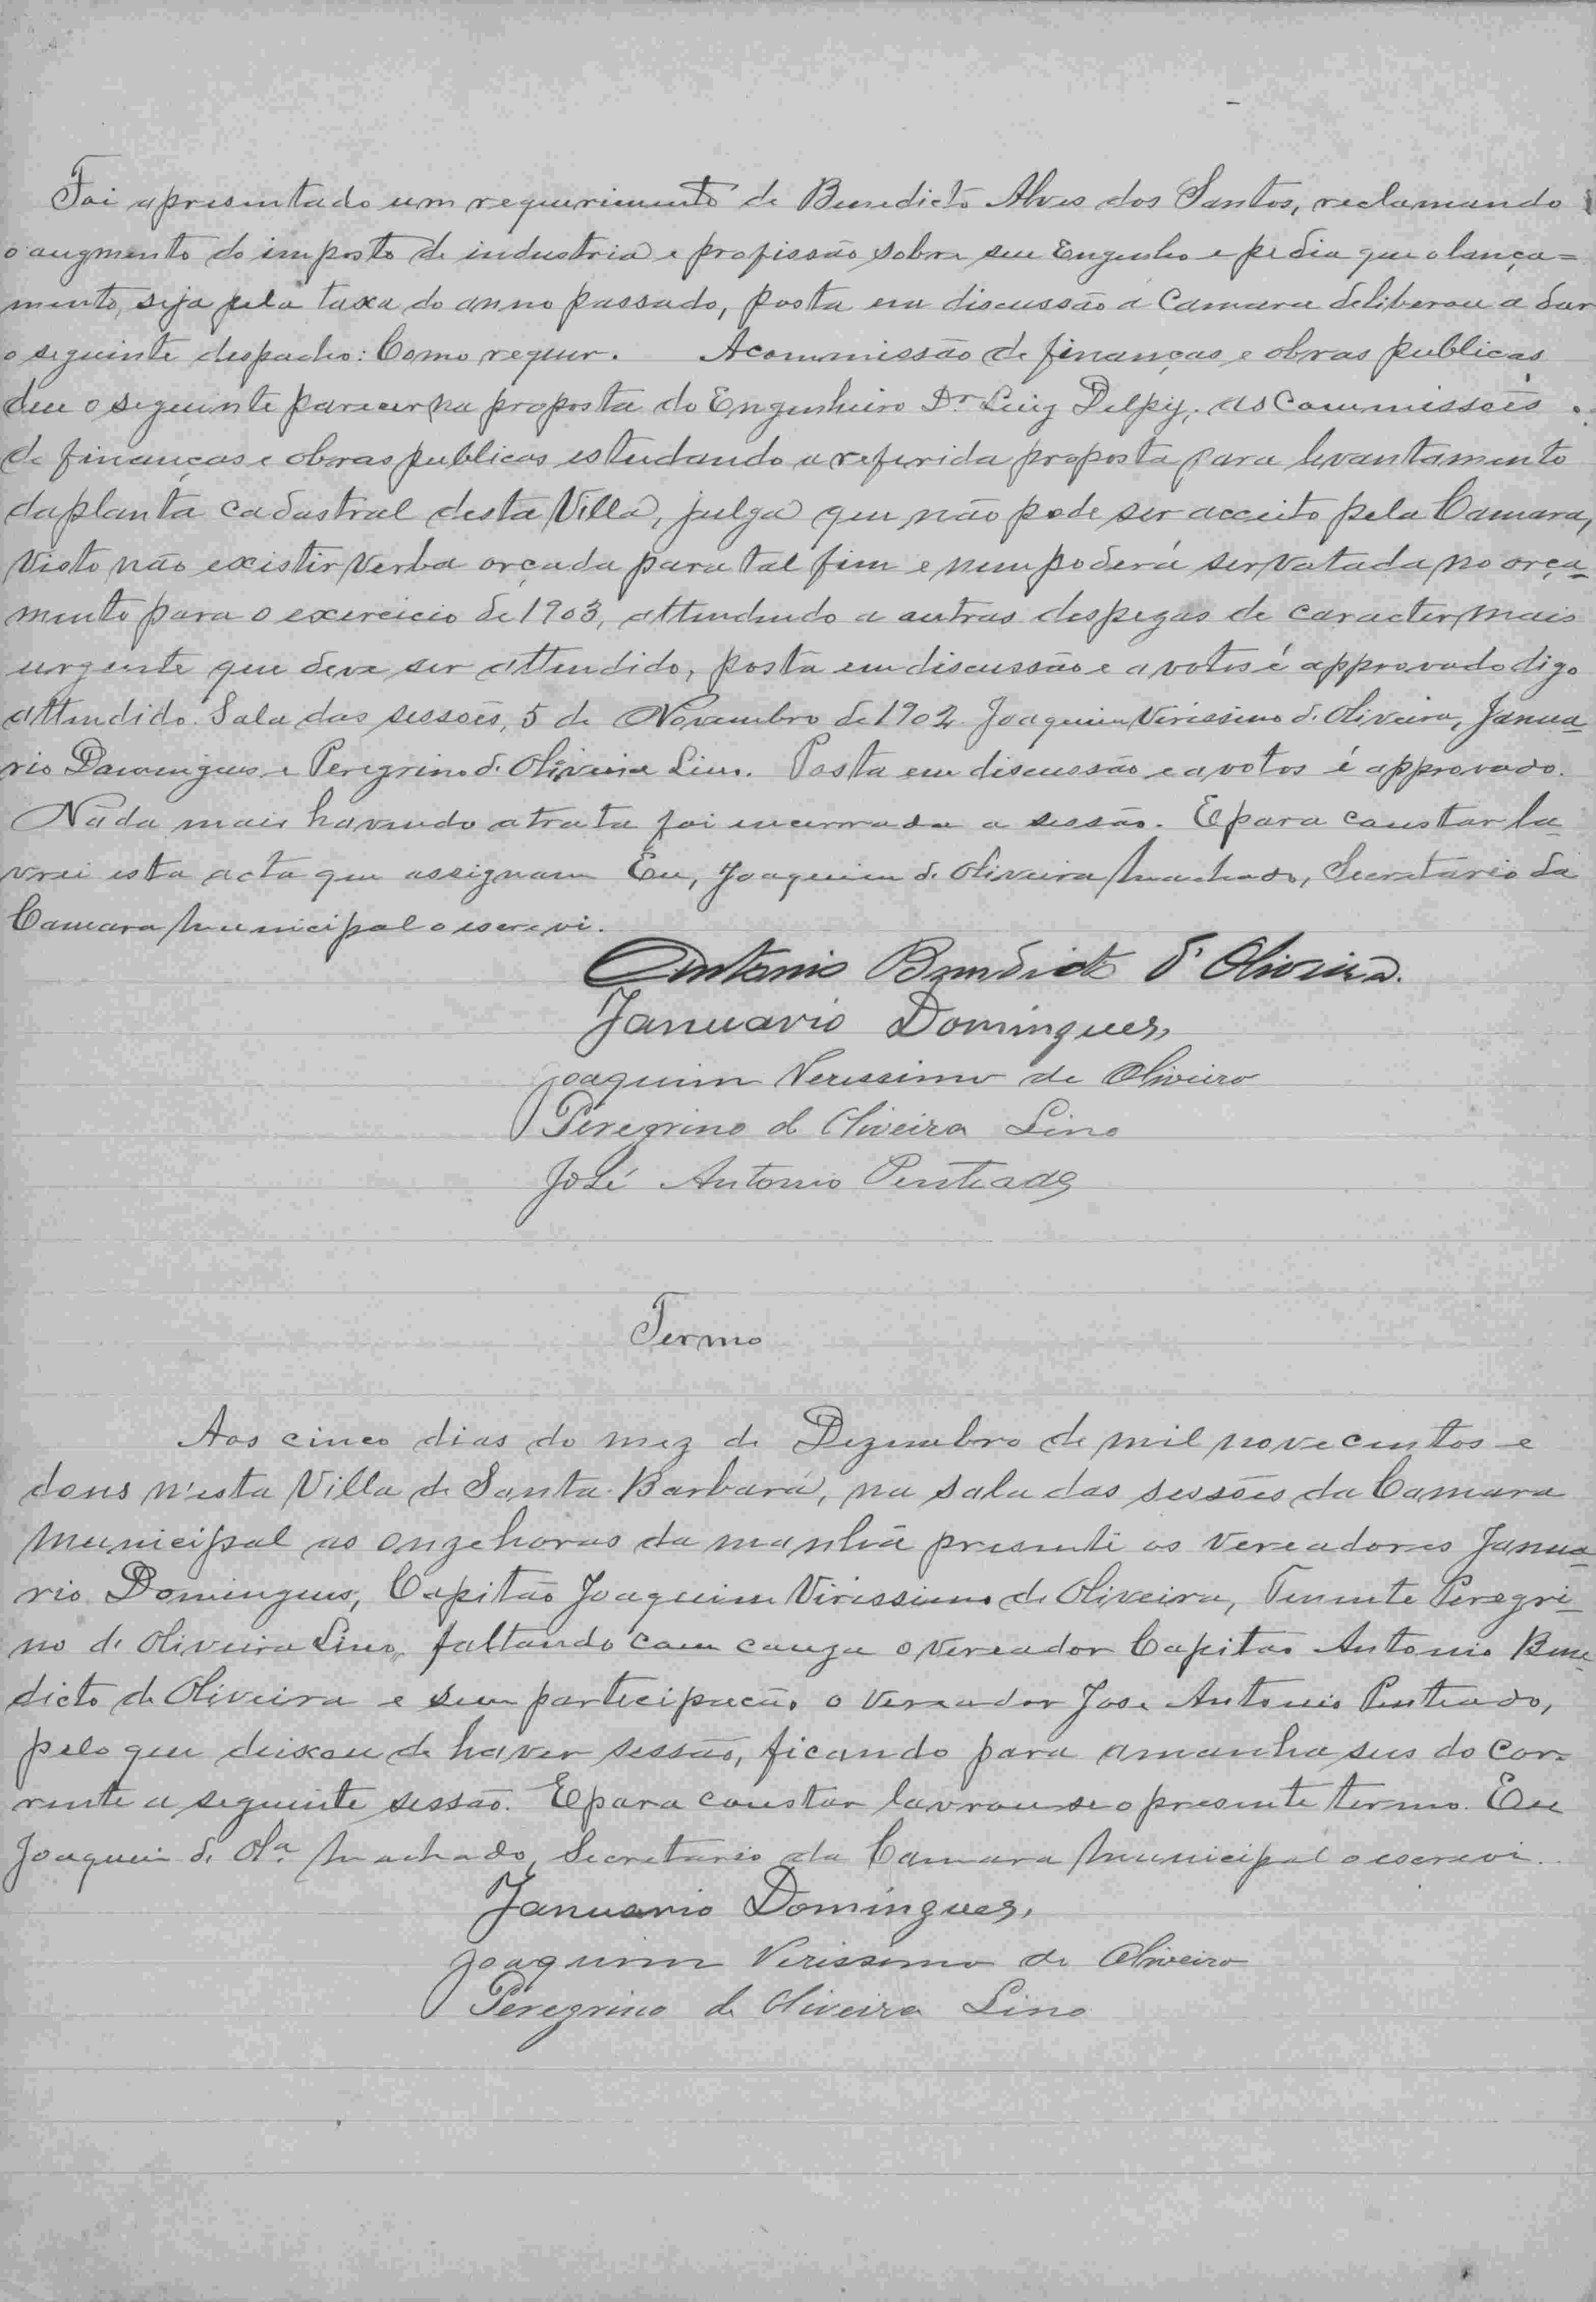 Foi apresentado um requerimento de Benedicto Alves dos Santos, reclamando
o augmento do imposto de industria e profissão sobre seu Engenho e pedia que o lança=
mento, seja pela taxa do anno passado, posta em discussão a Camara deliberou a dar
o seguinte despacho: Como requer. A commissão de finanças e obras publicas
deu o seguinte parecer na proposta do Engenheiro Dr. Luiz Delpy, as Commissões
de finanças e obras publicas estudando a referida proposta para levantamento
da planta cadastral desta Villa, julga que não pode ser acceito pela Camara,
visto não existir verba orçada para tal fim e nem poderá ser votada no orça-
mento para o exercicio de 1903, attendendo a outras despezas de caracter mais
urgente que deve ser attendido, posta em discussão e a votos é approvado digo
attendido. Sala das sessões, 5 de Novembro de 1902. Joaquim Virissimo d. Oliveira, Janua-
rio Domingues e Peregrino d. Oliveira Lino. Posta em discussão e a votos é approvado.
Nada mais havendo a trata foi encerrada a sessão. E para constar la-
vrei esta acta que assignam Eu, Joaquim d. Oliveira Machado, Secretario da
Camara Municipal o escrevi.
Antonio Bendicto d' Oliveira.
Januario Domingues,
Joaquim Verissimo de Oliveira
Peregrino d Oliveira Lino
José Antonio Penteado
Termo
Aos cinco dias do mez de Dezembro de mil novecentos e
dous n'esta Villa de Santa Barbara, na sala das sessões da Camara
Municipal as onze horas da manhã presente os vereadores Janua-
rio Domingues, Capitão Joaquim Virissimo de Oliveira, Tenente Peregri-
no de Oliveira Lino, faltando com cauza o vereador Capitão Antonio Bene-
dicto de Oliveira e sem participação o vereador Jose Antonio Penteado,
pelo que deixou de haver sessão, ficando para amanha seis do cor-
rente a seguinte sessão. E para constar lavrou se o presente termo. Eu
Joaquim d. Olª Machado, Secretario da Camara Municipal o escrevi.
Januario Domingues,
Joaquim Verissimo de Oliveira
Peregrino de Oliveira Lino